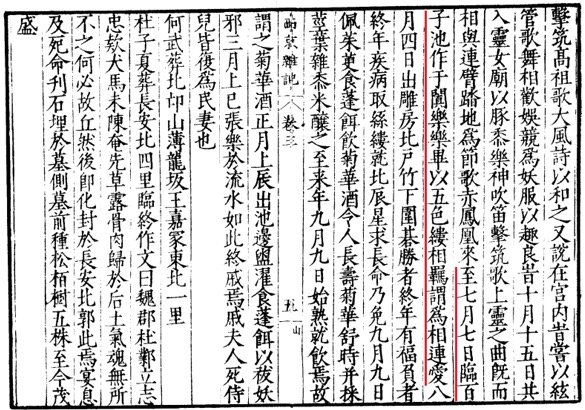 擊筑髙祖歌大風詩以和之又說在宫内旹嘗以絃
管歌舞相歡娛競爲妖服以趣良旹十月十五日共
入靈女廟以豚黍樂神吹笛擊筑歌上靈之曲旣而
相與連臂踏地爲節歌赤鳳凰來至七月七日臨百
子池作于闐樂樂畢以五色縷相羈謂爲相連愛八
月四日出雕房北戸竹下圍棊勝者終年有福負者
終年疾病取絲縷就北辰星求長命乃免九月九日
佩茱萸食蓬餌飲菊華酒令人長壽菊華舒時并採
莖葉雜黍米釀之至来年九月九日始熟就飲焉故
西京雜記 卷三 五 山
謂之菊華酒正月上辰出池邊盥濯食蓬餌以祓妖
邪三月上巳張樂於流水如此終歲焉戚夫人死侍
兒皆復爲民妻也
何武葬北邙山薄龍坂王嘉冢東北一里
杜子夏葬長安北四里臨終作文曰魏郡杜鄴立志
忠欵犬馬未陳奄先草露骨肉歸於后土氣魂無所
不之何必故丘然後即化封於長安北郭此焉宴息
及死命刋石埋於墓側墓前種松栢樹五株至今茂
盛